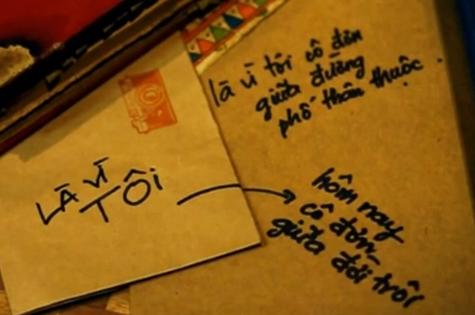 LÀ VÌ
TÔI
là vì tôi cô đơn
giữa đường
phố thân thuộc.
hôm nay
cô đơn
giữa đời trôi